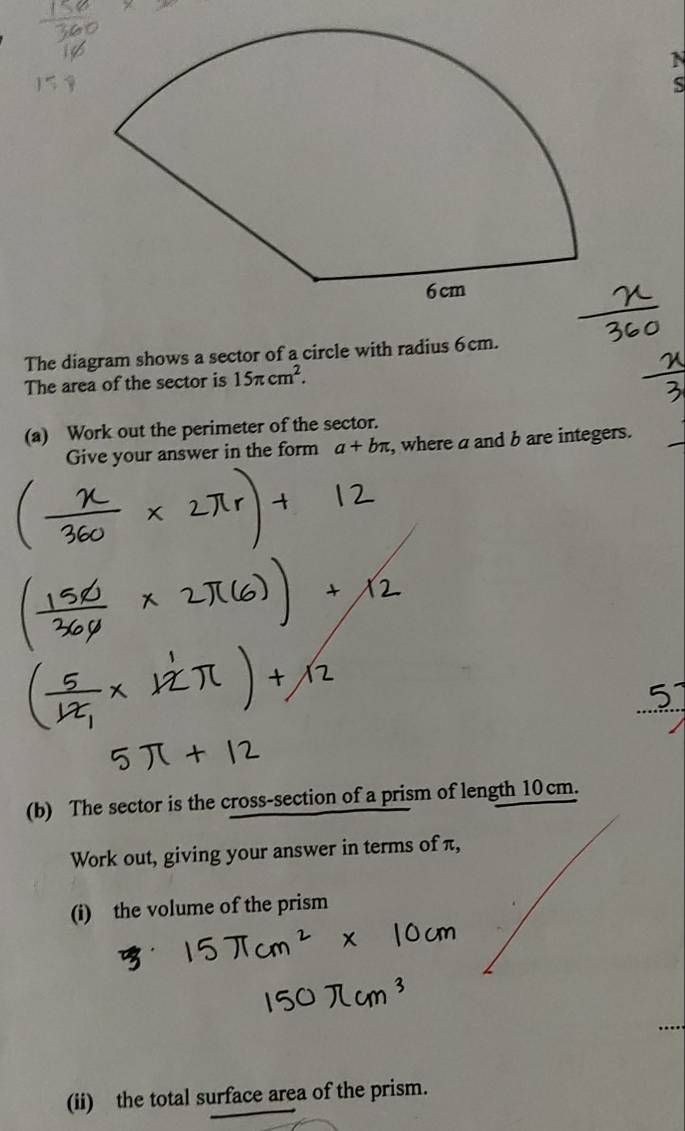 150
360
6cm
x
360
The diagram shows a sector of a circle with radius 6cm.
The area of the sector is 15π cm².
x
3
(a) Work out the perimeter of the sector.
Give your answer in the form a + bπ, where a and b are integers.
(x/360 × 2πr) + 12
(150/360 × 2π(6)) + 12
(5/12 1 × 12 1 π) + 12
5π + 12
5
(b) The sector is the cross-section of a prism of length 10cm.
Work out, giving your answer in terms of π,
(i) the volume of the prism
15πcm² × 10cm
150πcm³
(ii) the total surface area of the prism.